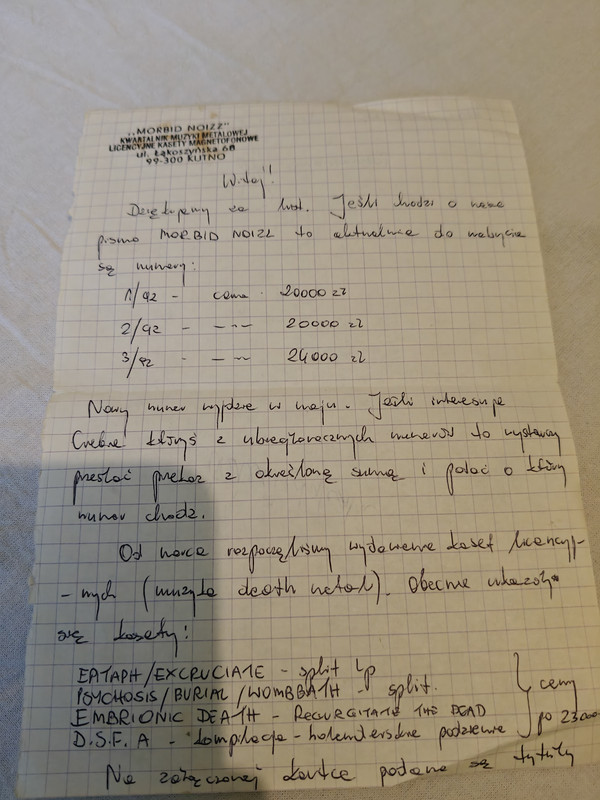 „MORBID NOIZZ"
KWARTALNIK MUZYKI METALOWEJ
LICENCYJNE KASETY MAGNETOFONOWE
ul. Łąkoszyńska 68
99-300 KUTNO
Witaj!
Dziękujemy za list. Jeśli chodzi o nasze
pismo MORBID NOIZZ to aktualnie do nabycia
są numery:
1/92 - cena - 20000 zł
2/92 - -"- 20000 zł
3/92 - -"- 24000 zł
Nowy numer wyjdzie w maju. Jeśli interesuje
Ciebie któryś z ubiegłorocznych numerów to wystarczy
przesłać przekaz z określoną sumą i podać o który
numer chodz.
Od marca rozpoczęliśmy wydawanie kaset licencyj-
-nych (muzyka death metal). Obecnie ukazały
się kasety:
EPITAPH/EXCRUCIATE - split Lp
PSYCHOSIS/BURIAL/WOMBBATH - split.
EMBRIONIC DEATH - REGURGITATE THE DEAD
D.S.F.A - kompilacja - holenderskie podziemie
ceny
po 23000
Na załączonej kartce podane są tytuły